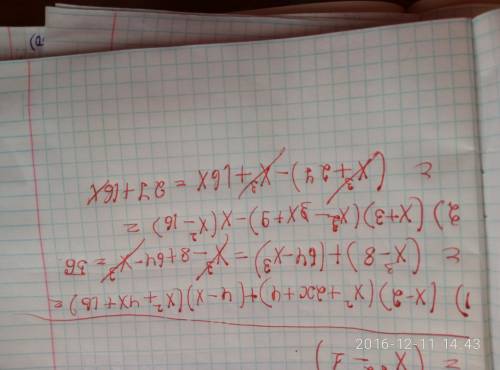 = (x² - 7)
1) (x-2)(x²+2x+4)+(4-x)(x²+4x+16)=
= (x³-8)+(64-x³)=x³-8+64-x³=56
2) (x+3)(x²-3x+9)-x(x²-16)=
= (x³+27)-x³+16x=27+16x
2016-12-11 14:43